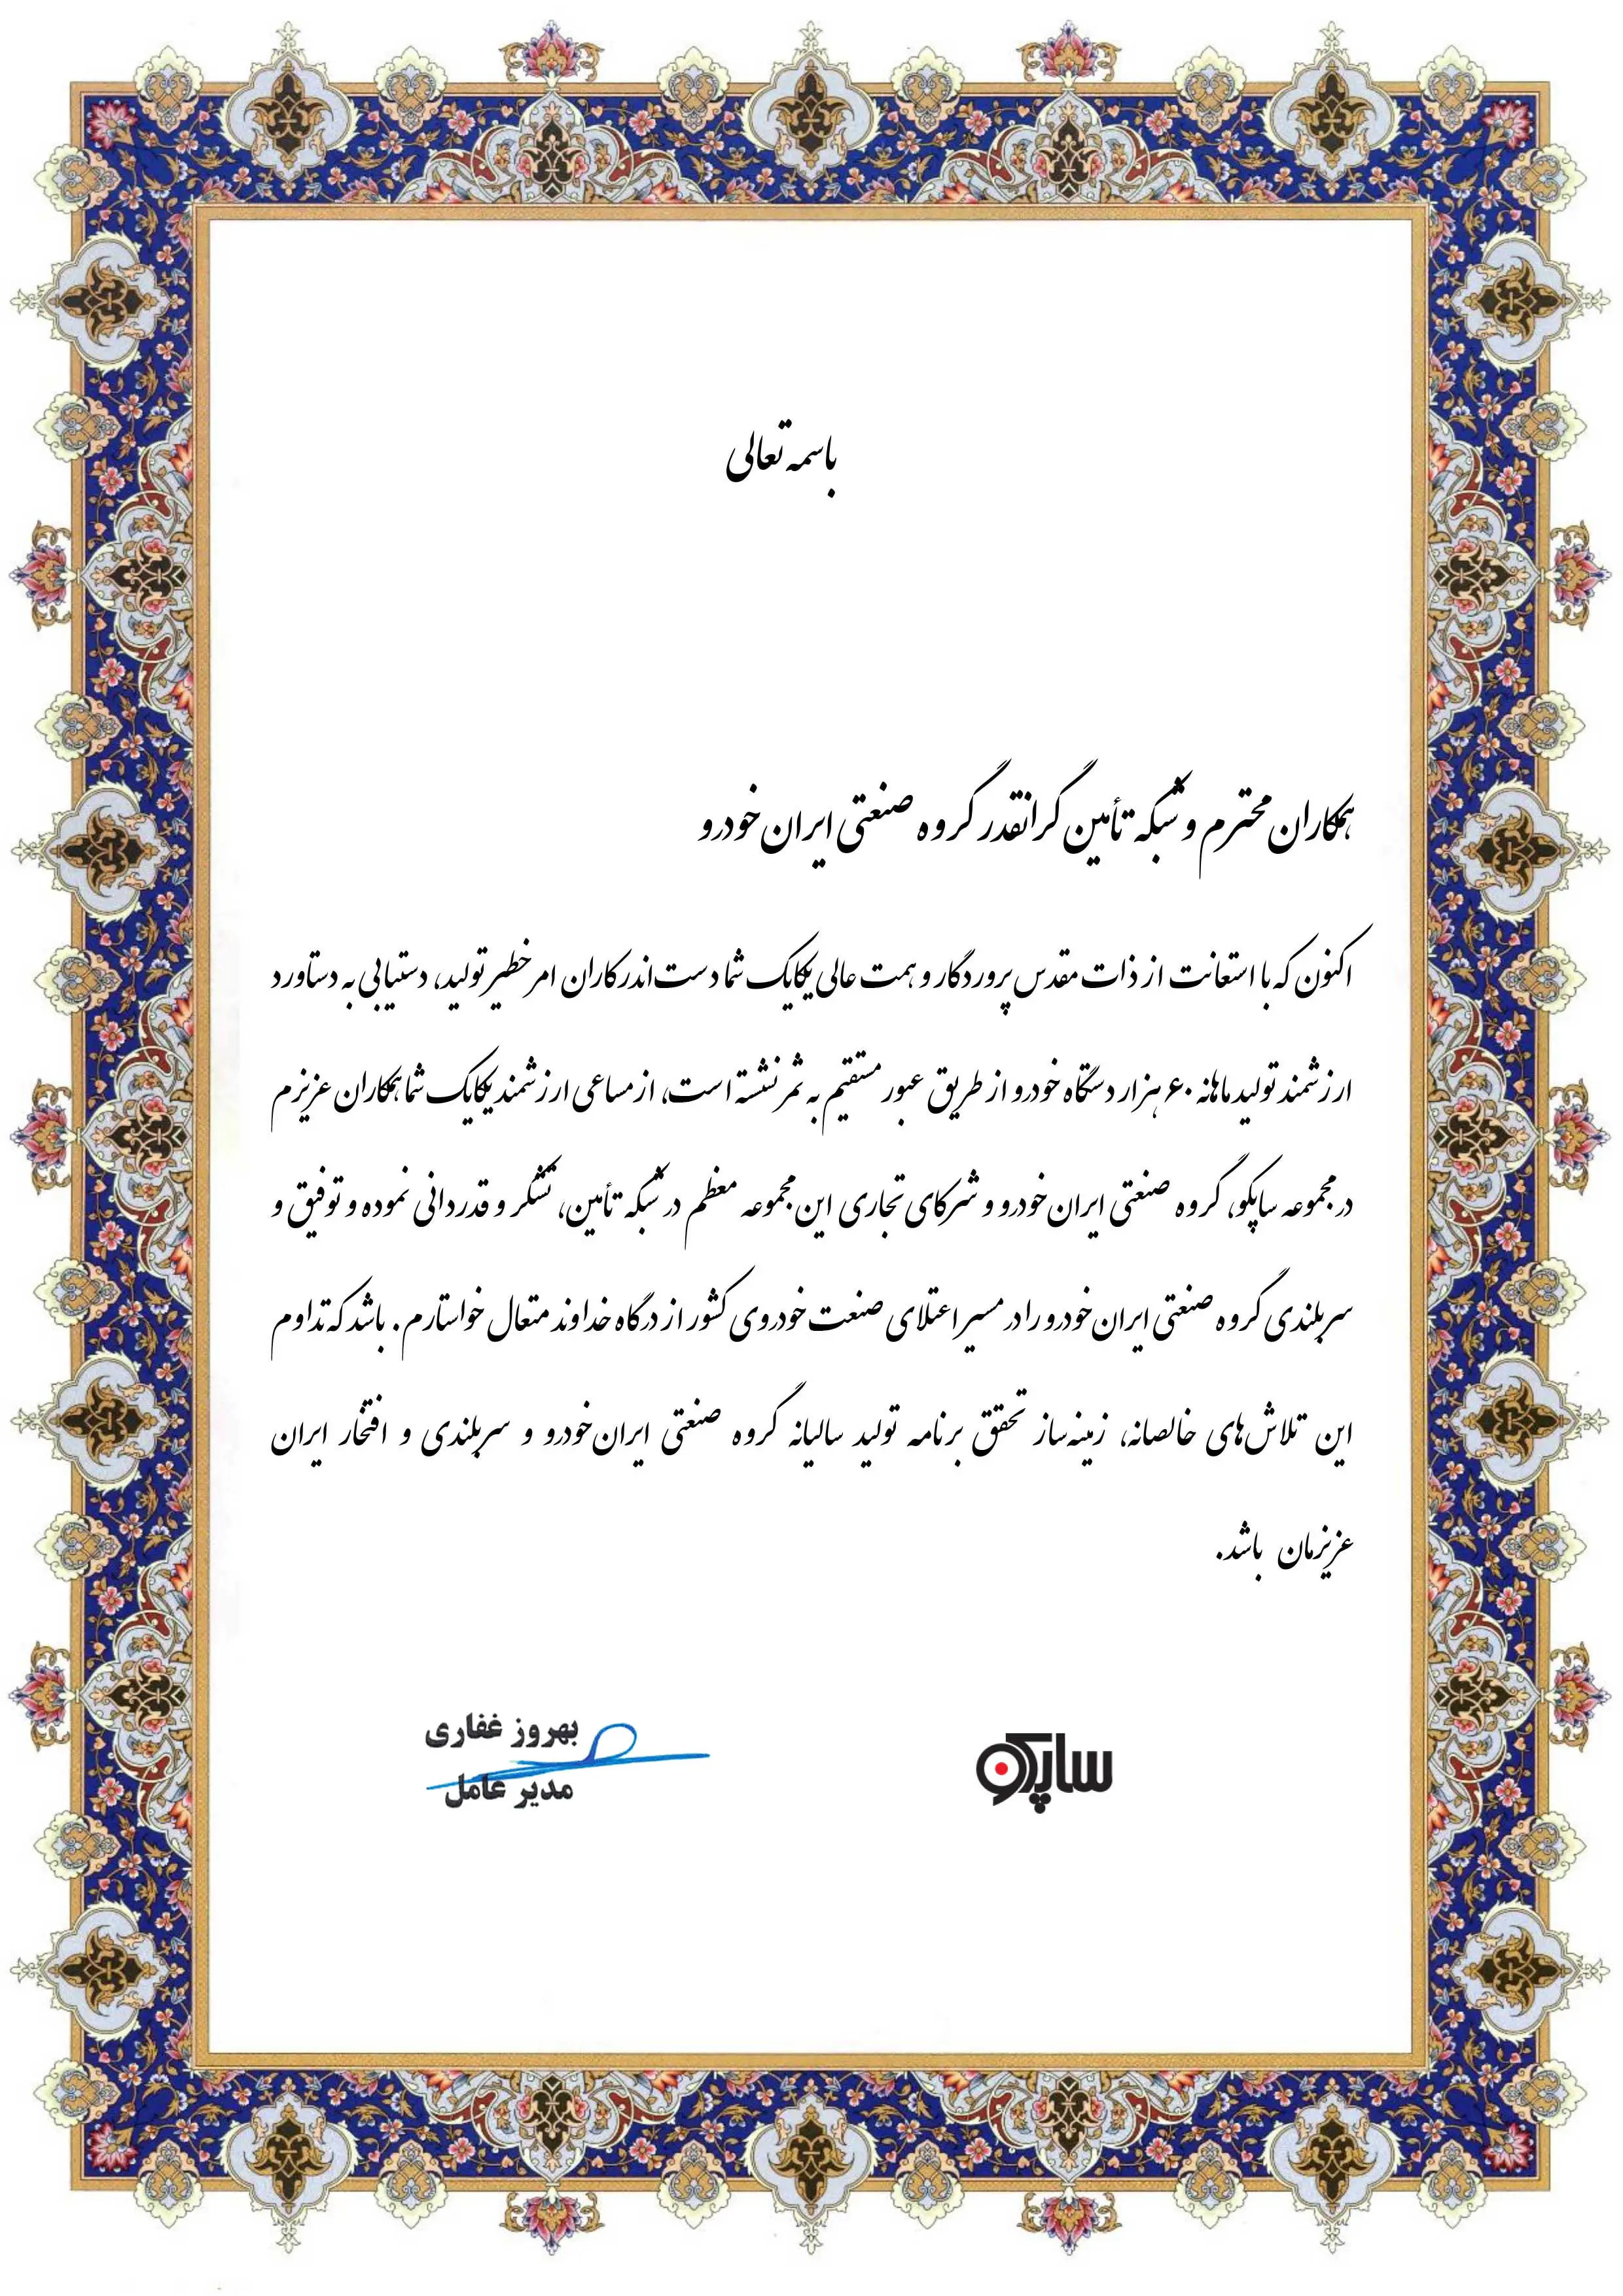 باسمه تعالی
همکاران محترم و شبکه تأمین گرانقدر گروه صنعتی ایران خودرو
اکنون که با استعانت از ذات مقدس پروردگار و همت عالی یکایک شما دست‌اندرکاران امر خطیر تولید، دستیابی به دستاورد
ارزشمند تولید ماهانه ۶۰ هزار دستگاه خودرو از طریق عبور مستقیم به ثمر نشسته است، از مساعی ارزشمند یکایک شما همکاران عزیزم
در مجموعه ساپکو، گروه صنعتی ایران خودرو و شرکای تجاری این مجموعه معظم در شبکه تأمین، تشکر و قدردانی نموده و توفیق و
سربلندی گروه صنعتی ایران خودرو را در مسیر اعتلای صنعت خودروی کشور از درگاه خداوند متعال خواستارم. باشد که تداوم
این تلاش‌های خالصانه، زمینه‌ساز تحقق برنامه تولید سالیانه گروه صنعتی ایران‌خودرو و سربلندی و افتخار ایران
عزیزمان باشد.
ساپکو
بهروز غفاری
مدیر عامل